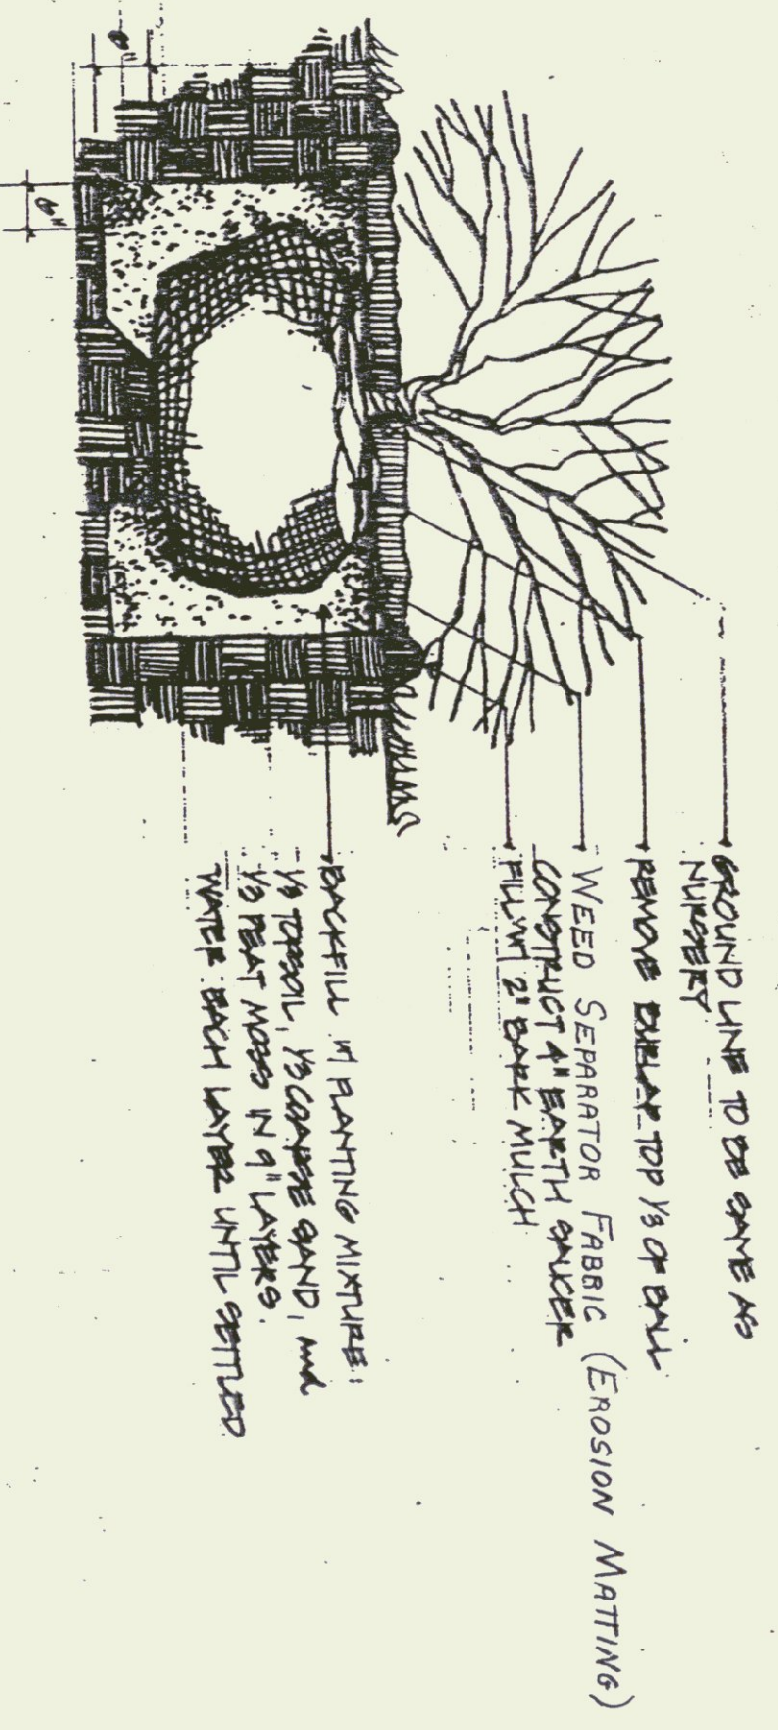 GROUND LINE TO BE SAME AS
NURSERY
REMOVE BURLAP TOP 1/3 OF BALL
WEED SEPARATOR FABRIC (EROSION MATTING)
CONSTRUCT 4" EARTH SAUCER
FILL W/ 2" BARK MULCH
BACKFILL W/ PLANTING MIXTURE:
1/3 TOPSOIL, 1/3 COARSE SAND, and
1/3 PEAT MOSS IN 9" LAYERS.
WATER EACH LAYER UNTIL SETTLED
6"
6"